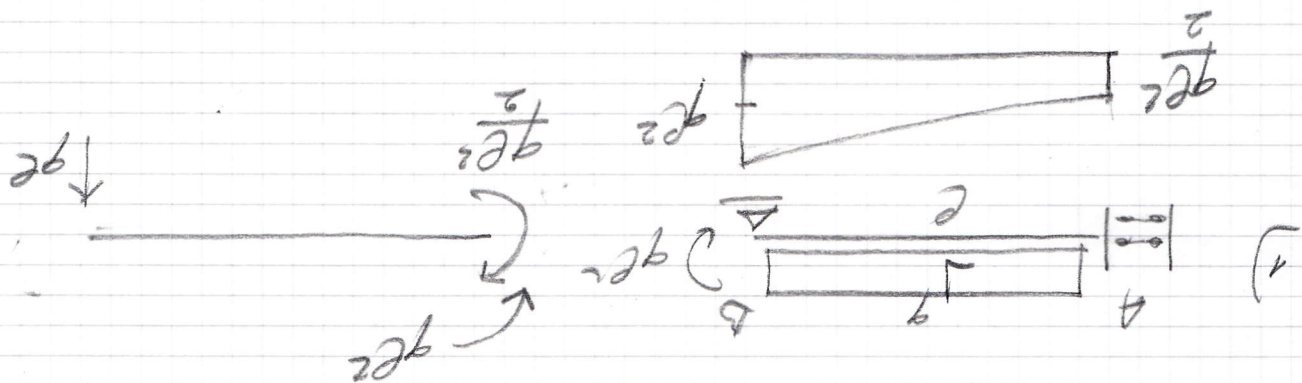 1)
A q B
ℓ
qℓ²
qℓ²
qℓ²/2
qℓ
qℓ²/2
qℓ²